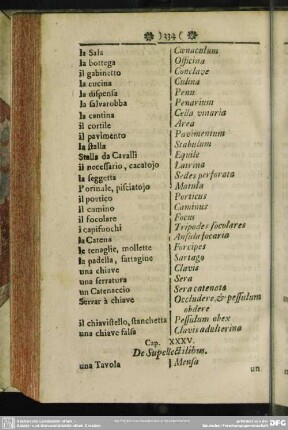 ) 334 (
la Sala Cœnaculum
la bottega Officina
il gabinetto Conclave
la cucina Culina
la dispensa Penu
la salvarobba Penarium
la cantina Cella vinaria
il cortile Area
il pavimento Pavimentum
la stalla Stabulum
Stalla da Cavalli Equile
il necessario, cacatojo Latrina
la seggetta Sedes perforata
l'orinale, pisciatojo Matula
il portico Porticus
il camino Caminus
il focolare Focus
i capifuochi Tripodes focolares
la Catena Ansula focaria
le tenaglie, mollette Forcipes
la padella, Sartago
una chiave Clavis
una serratura Sera
un Catenaccio Sera catenata
Serrar à chiave Occludere, & pessulum
obdere
il chiavistello, stanchetta Pessulum obex
una chiave falsa Clavis adulterina
Cap. XXXV.
De Supellectilibus.
una Tavola Mensa
un